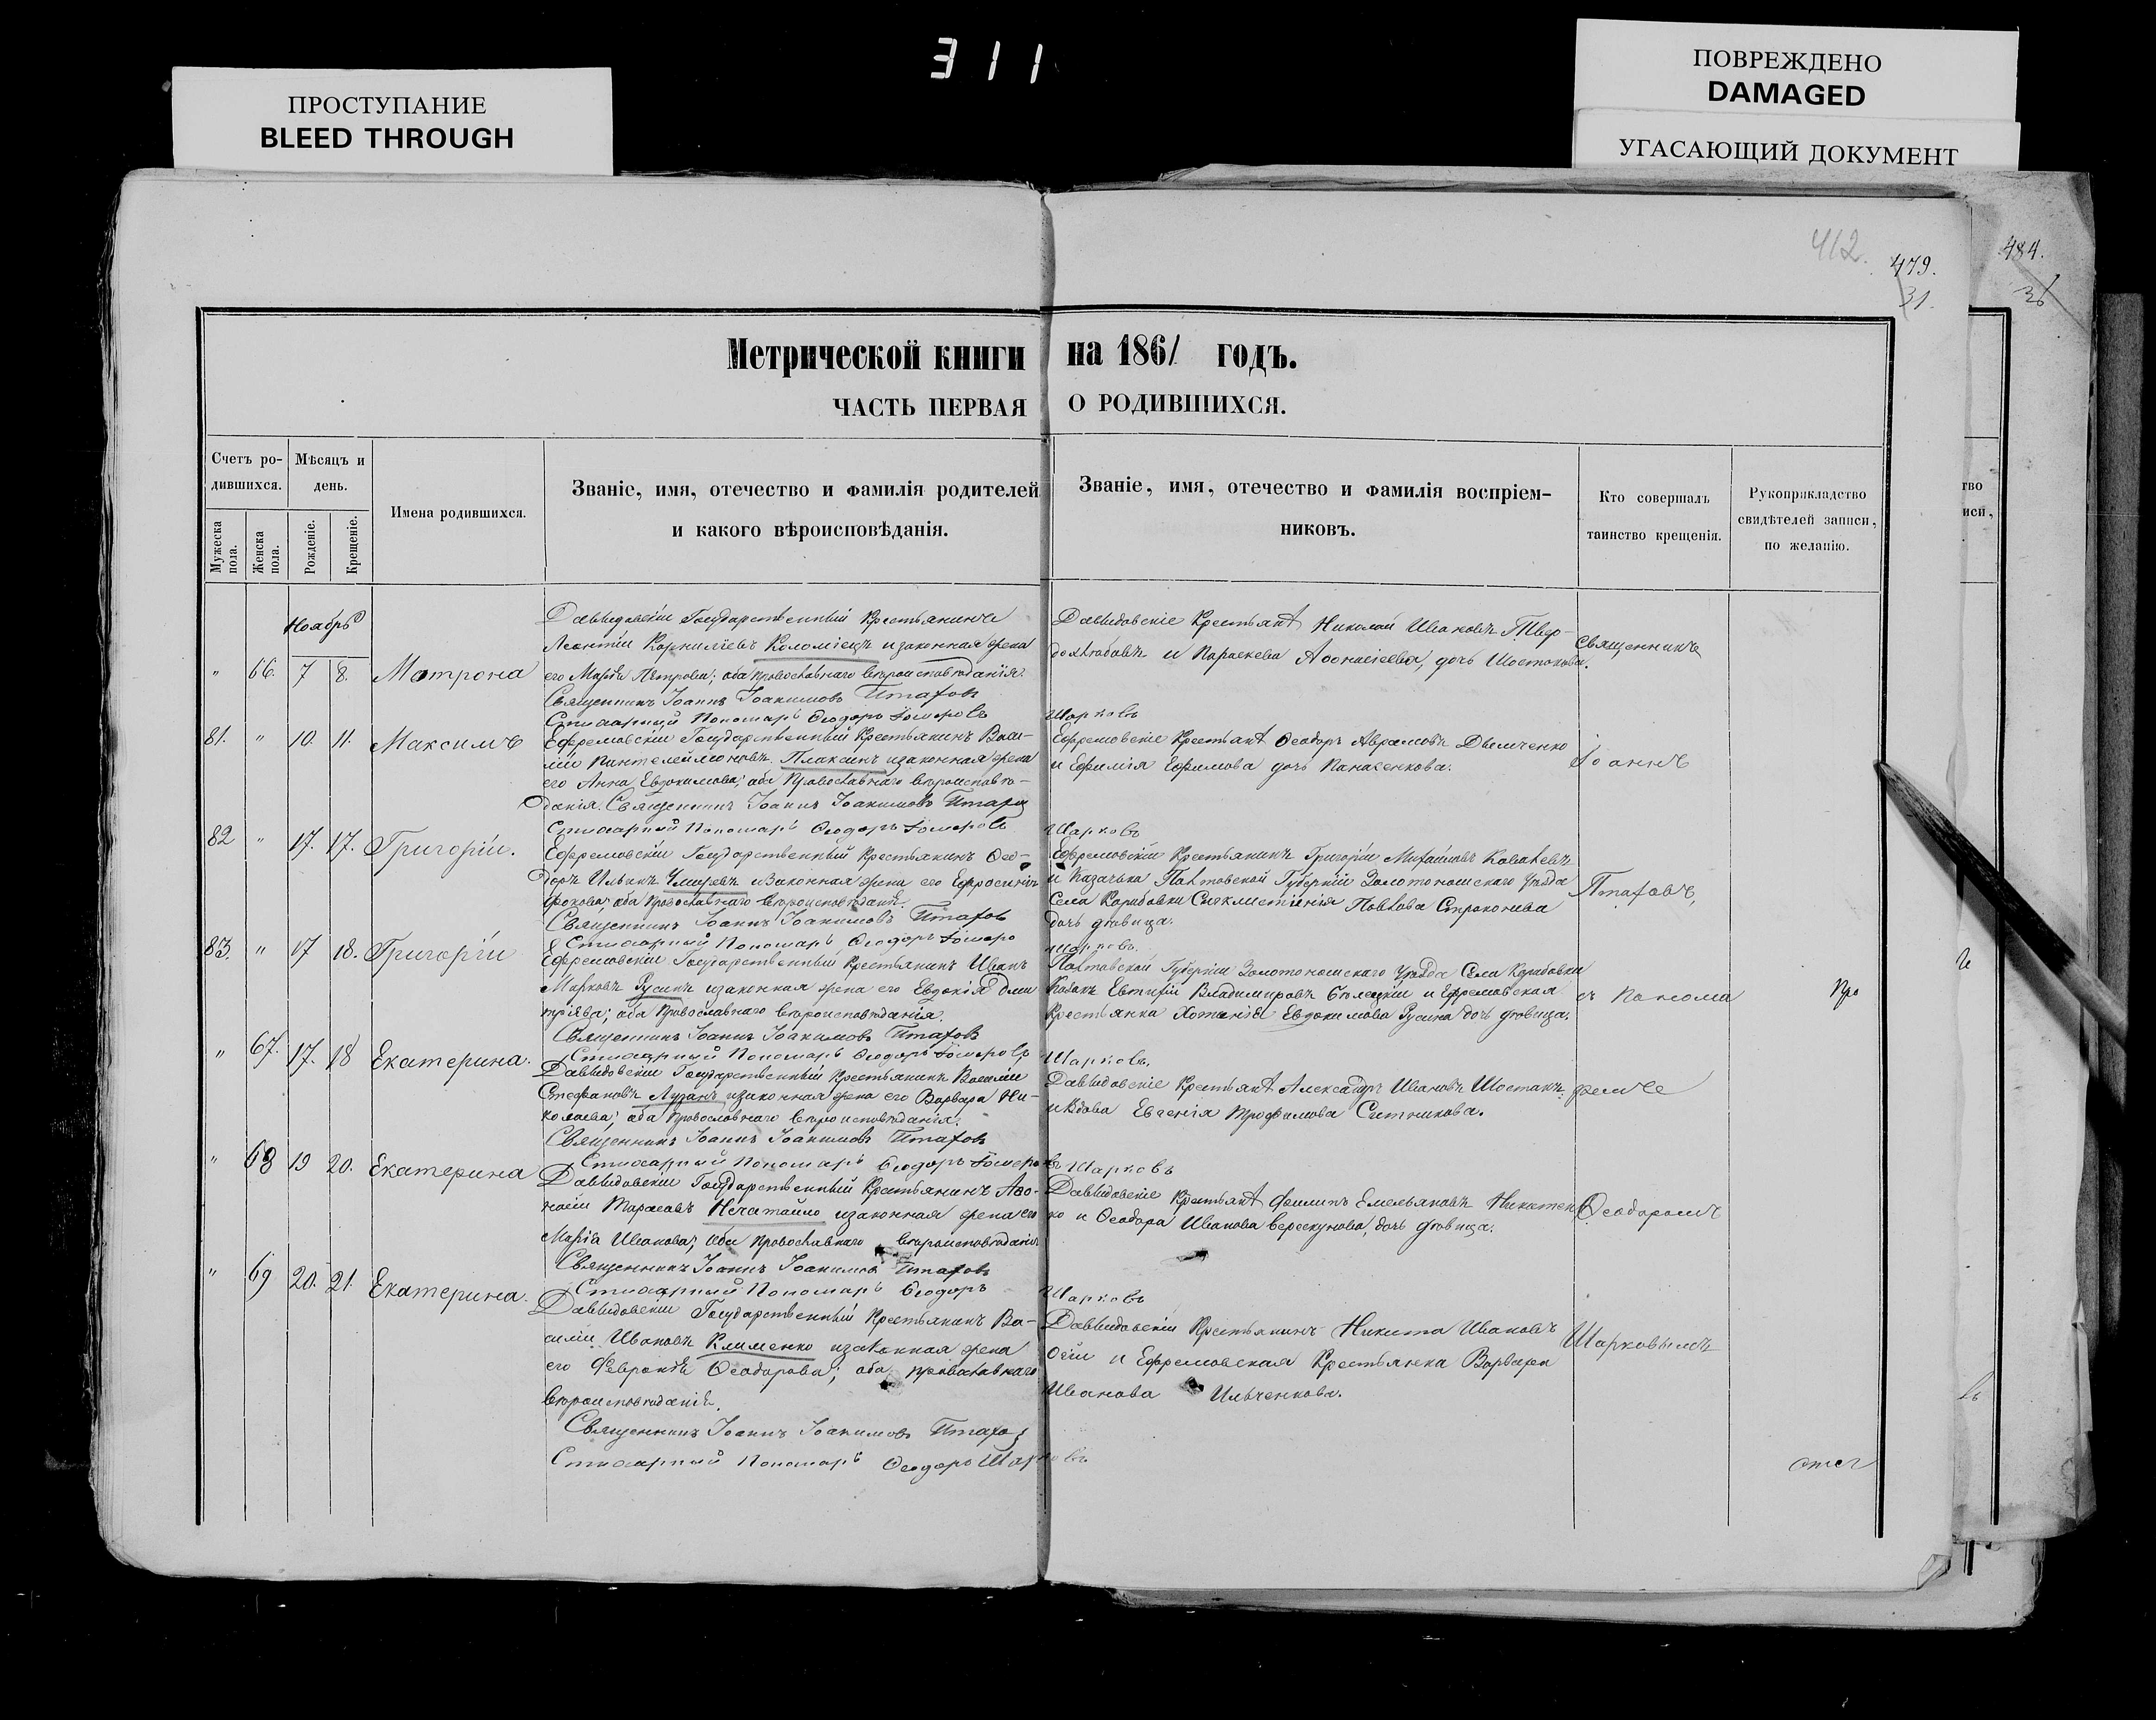 311
ПРОСТУПАНИЕ
BLEED THROUGH
ПОВРЕЖДЕНО
DAMAGED
УГАСАЮЩИЙ ДОКУМЕНТ
412.
479.
31.
484.
36
Метрической книги на 1861 годъ.
ЧАСТЬ ПЕРВАЯ О РОДИВШИХСЯ.
Счетъ ро-
дившихся.
Мужеска
пола.
Женска
пола.
Мѣсяцъ и
день.
Рожденіе.
Крещеніе.
Имена родившихся.
Званіе, имя, отечество и фамилія родителей
и какого вѣроисповѣданія.
Званіе, имя, отечество и фамилія воспріем-
никовъ.
Кто совершалъ
таинство крещенія.
Рукоприкладство
свидѣтелей записи,
по желанію.
тво
иси,
Ноябрь
" 66. 7 8. Матрона
Давыдовскій Государственный Крестьянинъ
Леонтій Корниліевъ Коломіецъ и законная жена
его Марія Петрова; оба православнаго вѣроисповѣданія.
Священникъ Іоаннъ Іоакимовъ Птаховъ
Стихарный Пономарь Ѳеодоръ Шарковъ
Давыдовскіе Крестьяне Николай Ивановъ Твер-
дохлѣбовъ и Параскева Аѳонасіева, дочь Шостакова.
Священникъ
81. " 10. 11. Максимъ
Ефремовскій Государственный Крестьянинъ Васи-
лій Пантелеймоновъ Плаксинъ и законная жена
его Анна Евдокимова; оба Православнаго вѣроисповѣ-
данія. Священникъ Іоаннъ Іоакимовъ Птахов
Стихарный Пономарь Ѳеодоръ Шарковъ
Ефремовскіе Крестьяне Ѳеодоръ Аврамовъ Демченко
и Ефимія Ефимова дочь Панасенкова.
Іоаннъ
82 " 17. 17. Григорій.
Ефремовскій Государственный Крестьянинъ Ѳео-
доръ Ильинъ и законная жена его Ефросинія
оба Православнаго вѣроисповѣданія.
Священникъ Іоаннъ Іоакимовъ Птаховъ
Стихарный Пономарь Ѳеодоръ Шарковъ.
Ефремовскій Крестьянинъ Григорій Михайловъ Ковалевъ
и Казачька Полтавской Губерніи Золотоношскаго Уѣзда
Села Корабовки Павлова
дочь дѣвица.
Птаховъ,
83. " 17 18. Григорій
Ефремовскій Государственный Крестьянинъ Иванъ
Марковъ Русинъ и законная жена его Евдокія Дми
тріева; оба Православнаго вѣроисповѣданія.
Священникъ Іоаннъ Іоакимовъ Птаховъ
Стихарный Пономарь Ѳеодоръ Шарковъ.
Полтавской Губерніи Золотоношскаго Уѣзда Села Корабовки
Козакъ Евтихій Владимировъ Бѣлецкій и Ефремовская
Крестьянка Евдокимова Русина дочь дѣвица.
съ Понома
Про
" 67. 17. 18 Екатерина.
Давыдовскій Государственный Крестьянинъ Василій
Стефановъ Луганъ и законная жена его Варвара Ни-
колаева; оба Православнаго вѣроисповѣданія.
Священникъ Іоаннъ Іоакимовъ Птаховъ
Стихарный Пономарь Ѳеодоръ Шарковъ
Давыдовскіе Крестьяне Александръ Ивановъ Шостакъ
и вдова Евгенія Трофимова Ситникова.
" 68 19 20. Екатерина
Давыдовскій Государственный Крестьянинъ Аѳо-
насій Тарасовъ Нечитайло и законная жена его
Марія Иванова; оба Православнаго вѣроисповѣданія
Священникъ Іоаннъ Іоакимовъ Птаховъ
Стихарный Пономарь Ѳеодоръ Шарковъ
Давыдовскіе Крестьяне Филипъ Емельяновъ Никитен
ко и Ѳеодора Иванова Верескунова, дочь дѣвица.
Ѳеодоромъ
" 69 20. 21. Екатерина.
Давыдовскій Государственный Крестьянинъ Ва-
силій Ивановъ Клименко и законная жена
его Февронія Ѳеодорова; оба православнаго
вѣроисповѣданія.
Священникъ Іоаннъ Іоакимовъ Птахов
Стихарный Пономарь Ѳеодоръ Шарковъ
Давыдовскій Крестьянинъ Никита Ивановъ
и Ефремовская Крестьянка Варвара
Иванова Ильченкова.
Шарковымъ